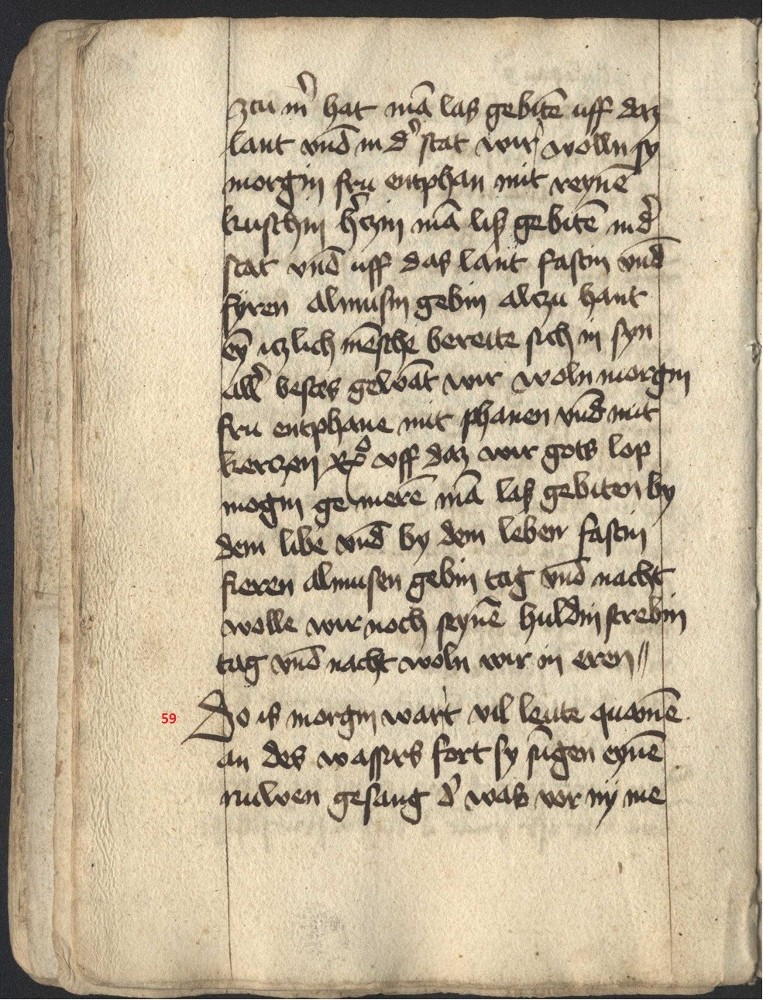 zcu mˀ hat mā las gebitē uff daz
lant vnd̄ in dˀ stat wir wolln sy
morgin fru entphan mit reynē
kuschin hˀczin mā lis gebitē in dˀ
stat vnd̄ uff das lant fastin vnd̄
fyren almusin gebin alczu hant
eȳ iczlich mēsche bereite sich in syn
allˀ bestes gewāt wir woln morgin
fru entphane mit phanen vnd̄ mit
kerczen uff daz wir gots lop
mogin ge merē mā las gebiten by
dem libe vnd̄ by dem leben fastin
fieren almusen gebin tag vnd̄ nacht
wolle wir noch seynē huldin strebin
tag vnd̄ nacht woln wir in eren //
59 Do is morgin wart vil leute quamē
an des wassirs fort sy sūgen eynē
nuwen gesang dˀ was vor ny me